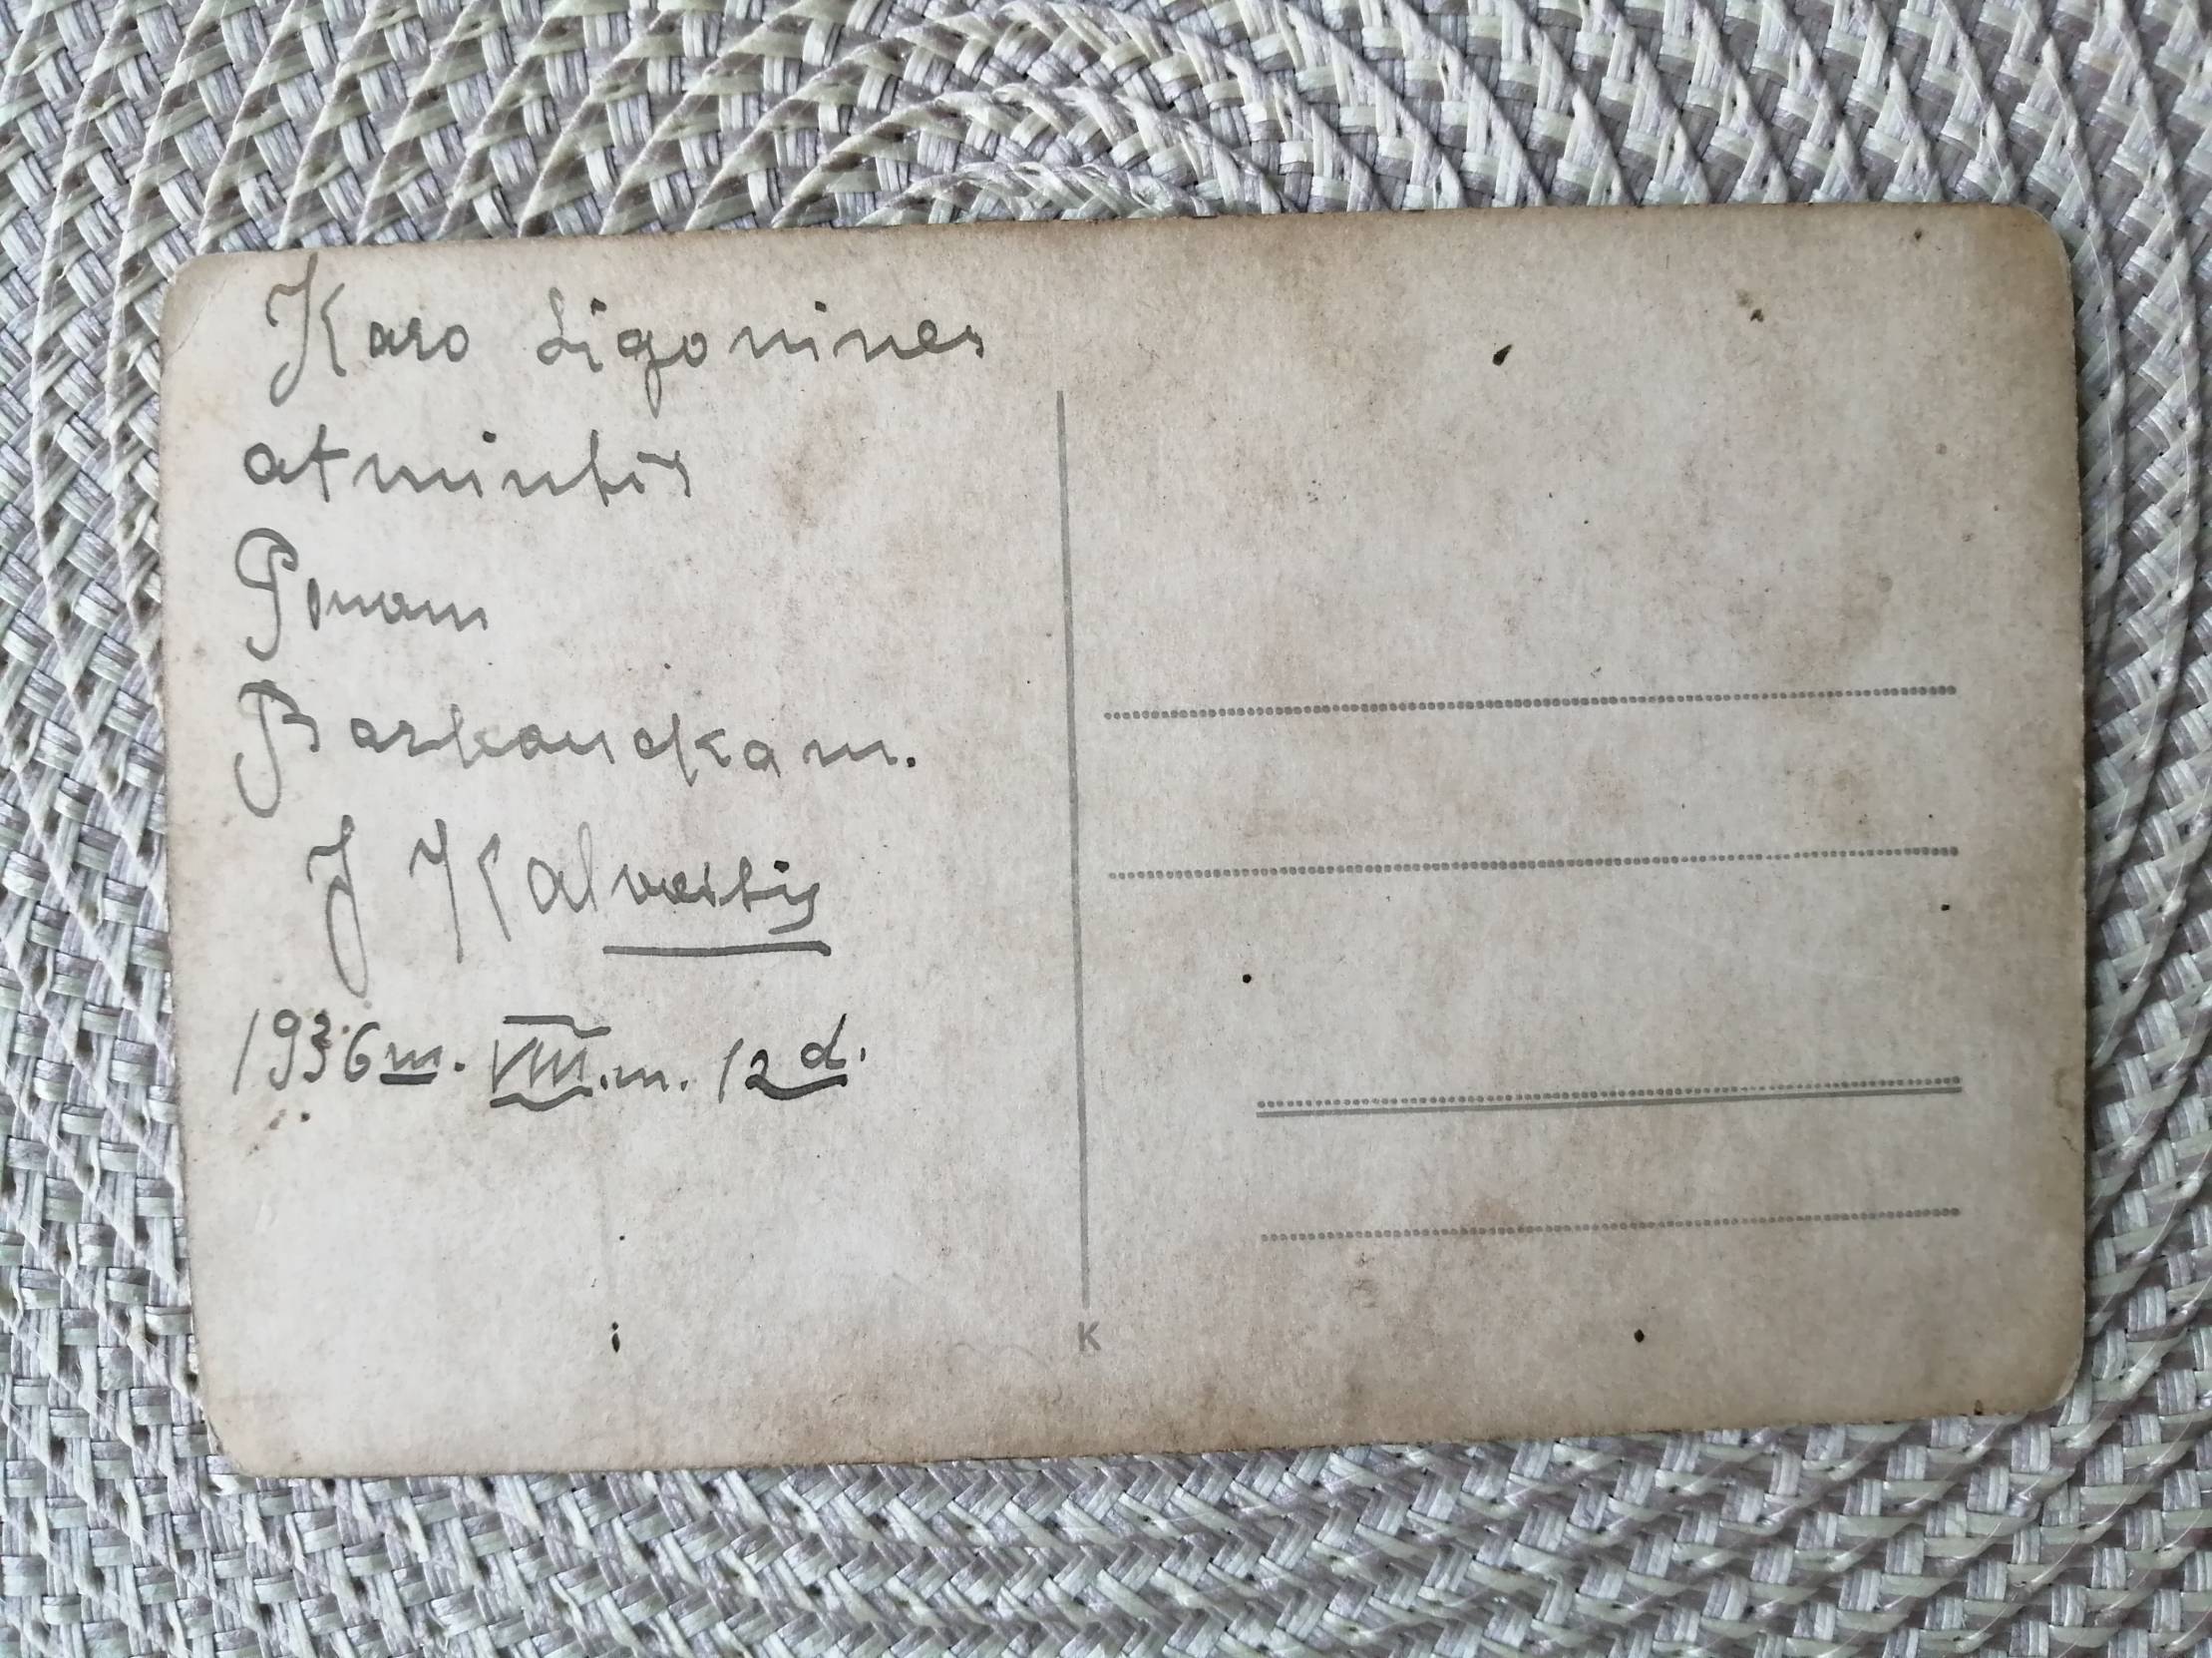 Karo Ligonines
atmintis
Ponam
Barkauckam.
J Kalvaitis
1936 m. VIII. m. 12 d.
K